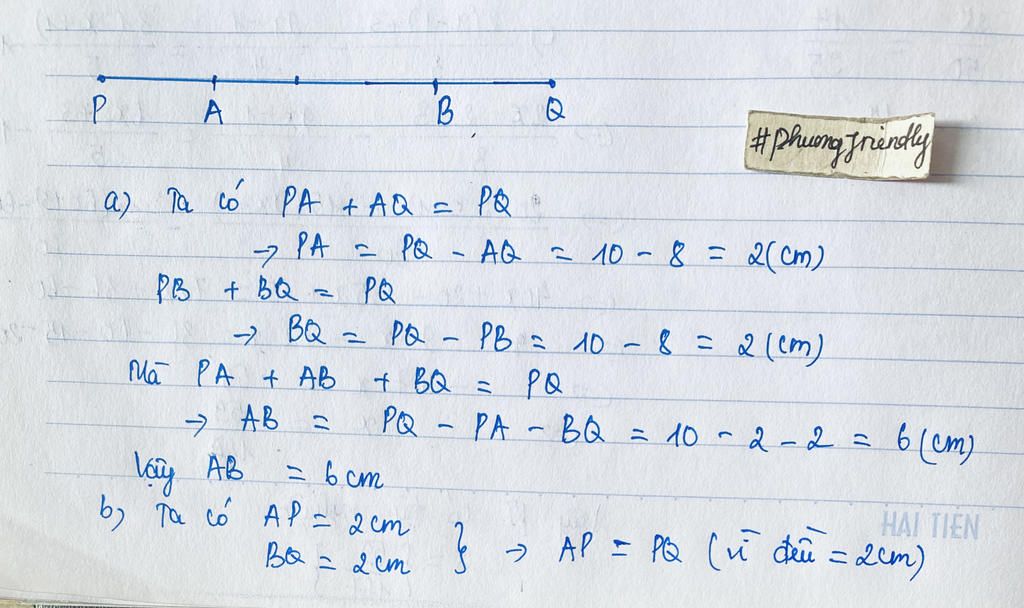 P A B Q
#phuongfriendly
a) Ta có PA + AQ = PQ
→ PA = PQ - AQ = 10 - 8 = 2(cm)
PB + BQ = PQ
→ BQ = PQ - PB = 10 - 8 = 2(cm)
Mà PA + AB + BQ = PQ
→ AB = PQ - PA - BQ = 10 - 2 - 2 = 6(cm)
Vậy AB = 6cm
HAI TIEN
b) Ta có AP = 2cm
BQ = 2cm } → AP = PQ (vì đều = 2cm)